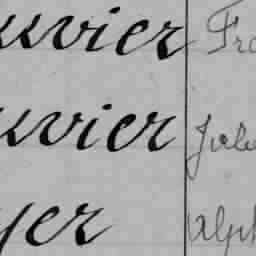 uvier Fra
uvier Jule
yer Alph